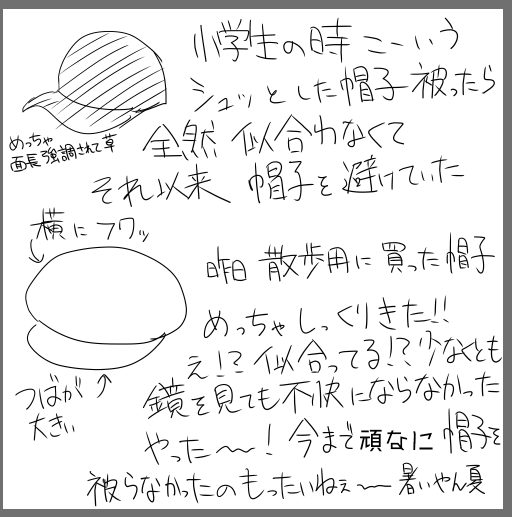 小学生の時こーいう
シュッとした帽子被ったら
めっちゃ
面長強調されて草
全然似合わなくて
それ以来 帽子を避けていた
横にフワッ
昨日 散歩用に買った帽子
めっちゃしっくりきた!!
え!?似合ってる!?少なくとも
つばが
大きい
鏡を見ても不快にならなかった
やった〜!今まで頑なに帽子を
被らなかったのもったいねぇ〜暑いやん夏